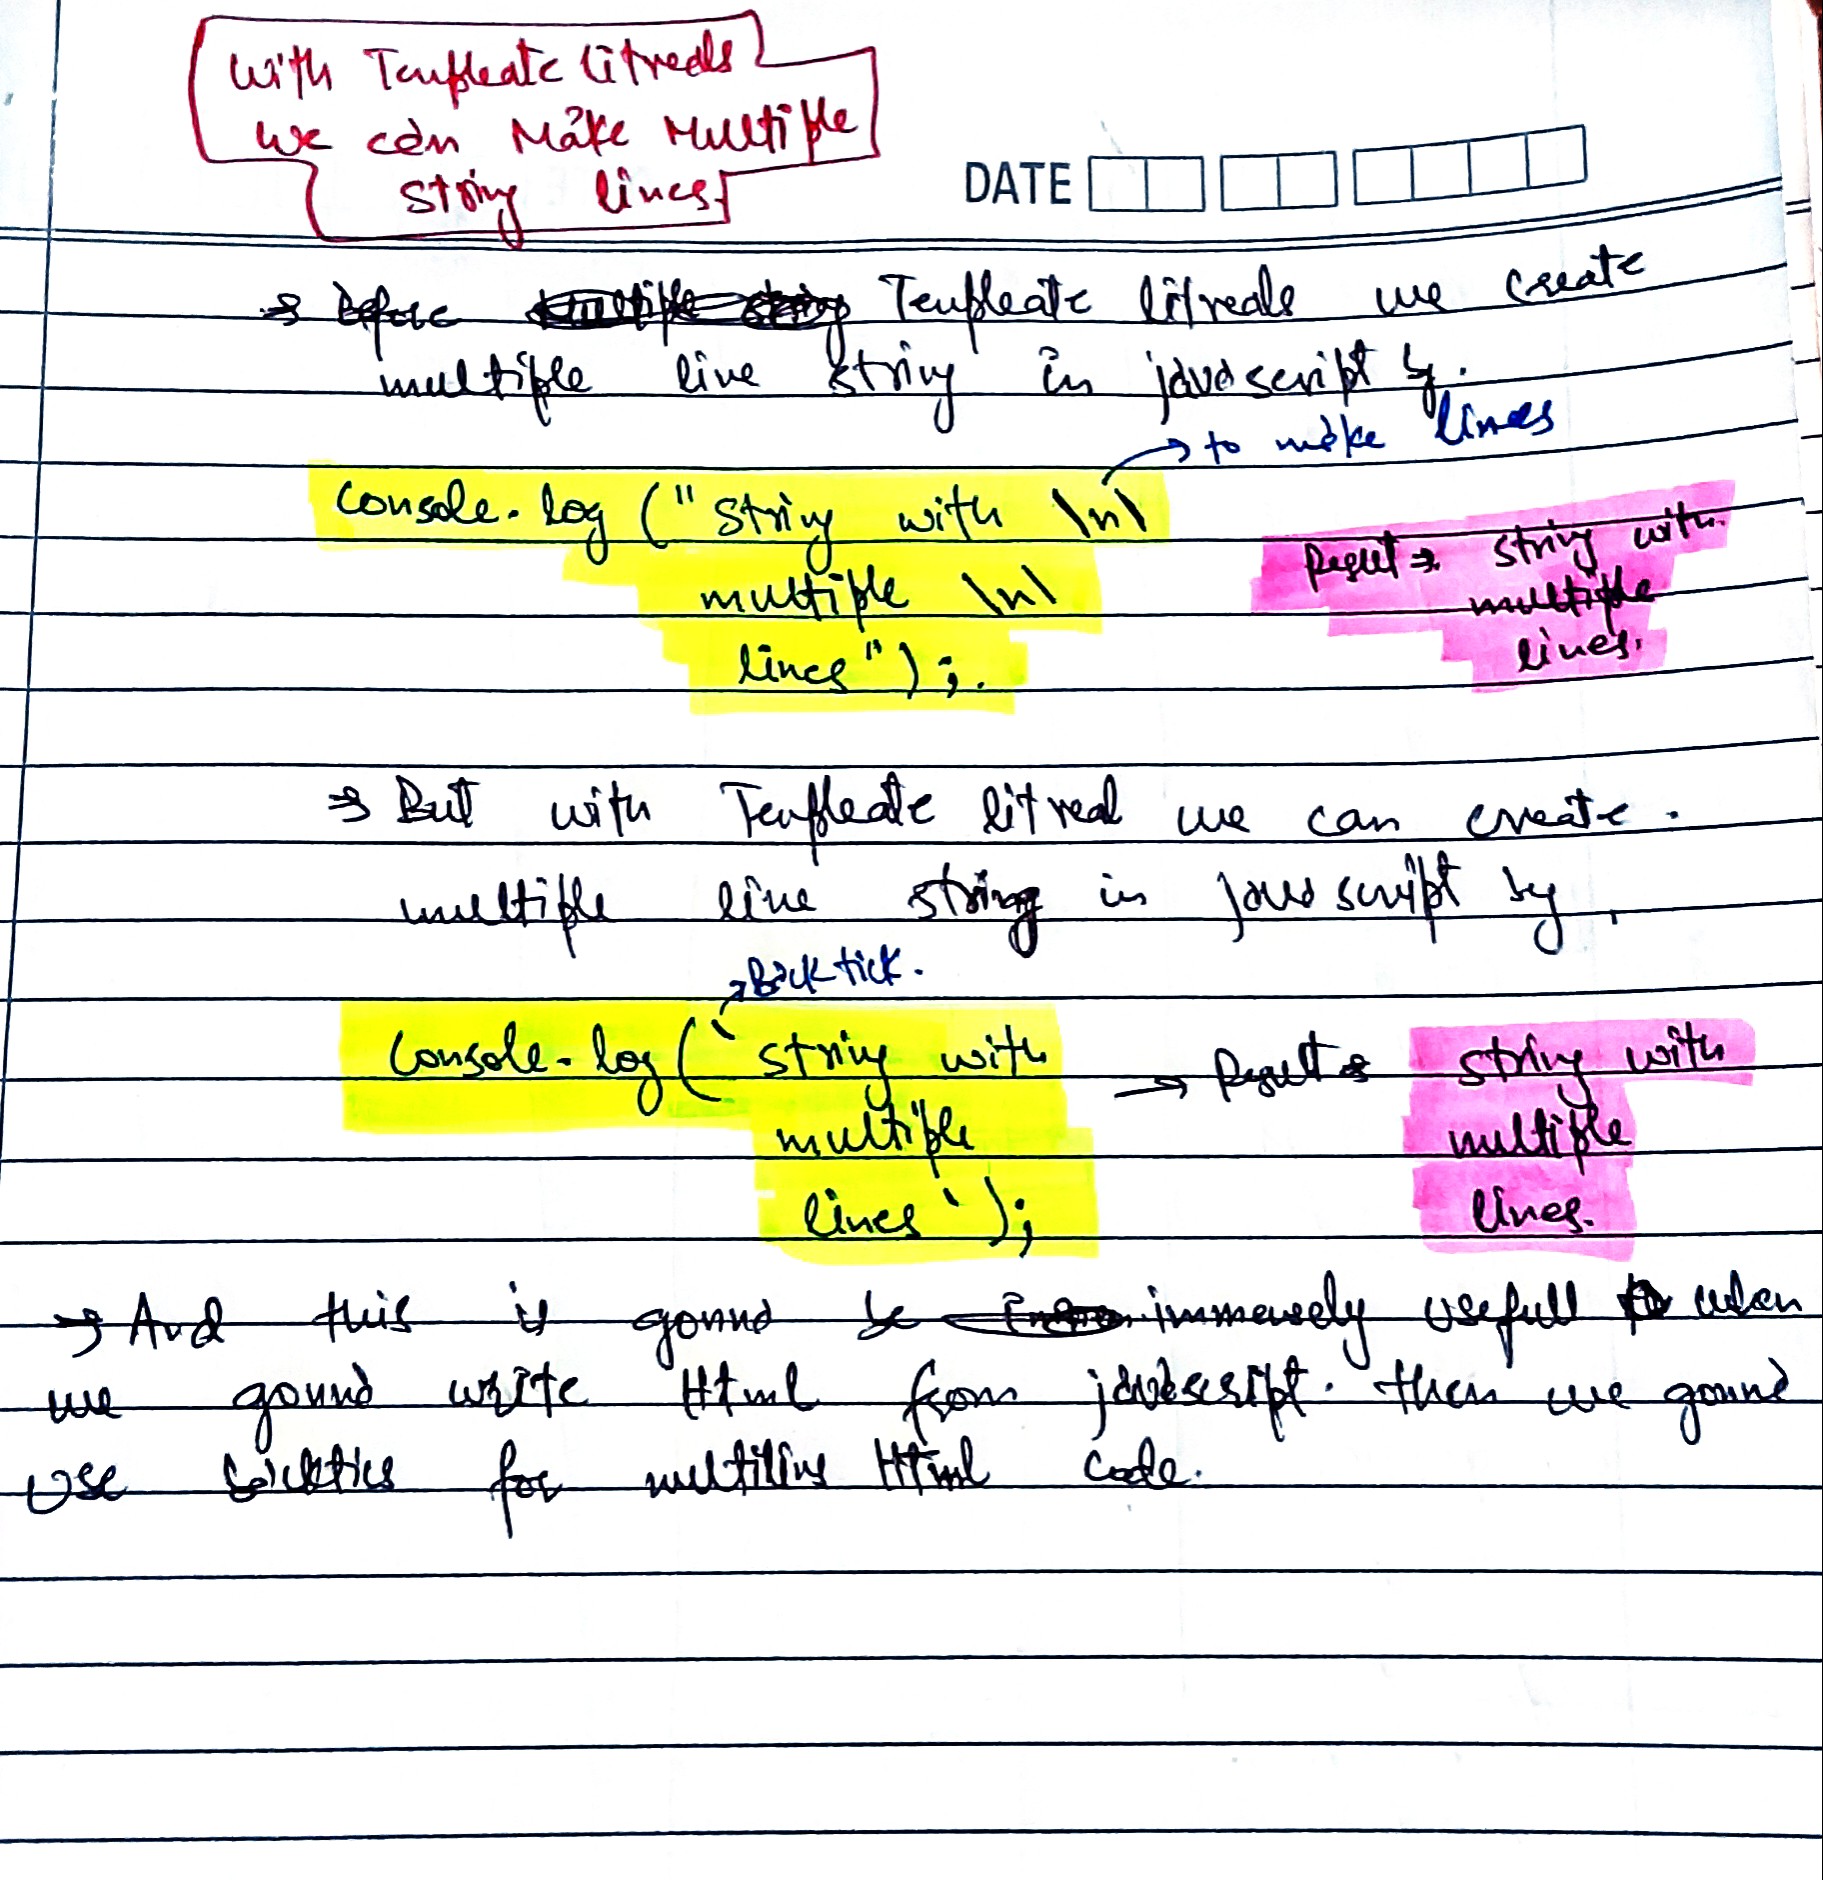 With Templeate litreals
We can Make Multiple
String lines
DATE
⇒ Before Templeate litreals we create
multiple line string in javascript by.
→ to make lines
console.log ("String with \n\
multiple \n\
lines");.
Result ⇒ String with
multiple
lines.
⇒ But with Templeate litreal we can create.
multiple line string in javascript by,
→ Back tick.
Console.log (` string with
multiple
lines `);
→ Result ⇒ string with
multiple
lines.
→ And this is gonna be immensely usefull when
we gonna write Html from javascript. then we gonna
use backtics for multiline Html code.